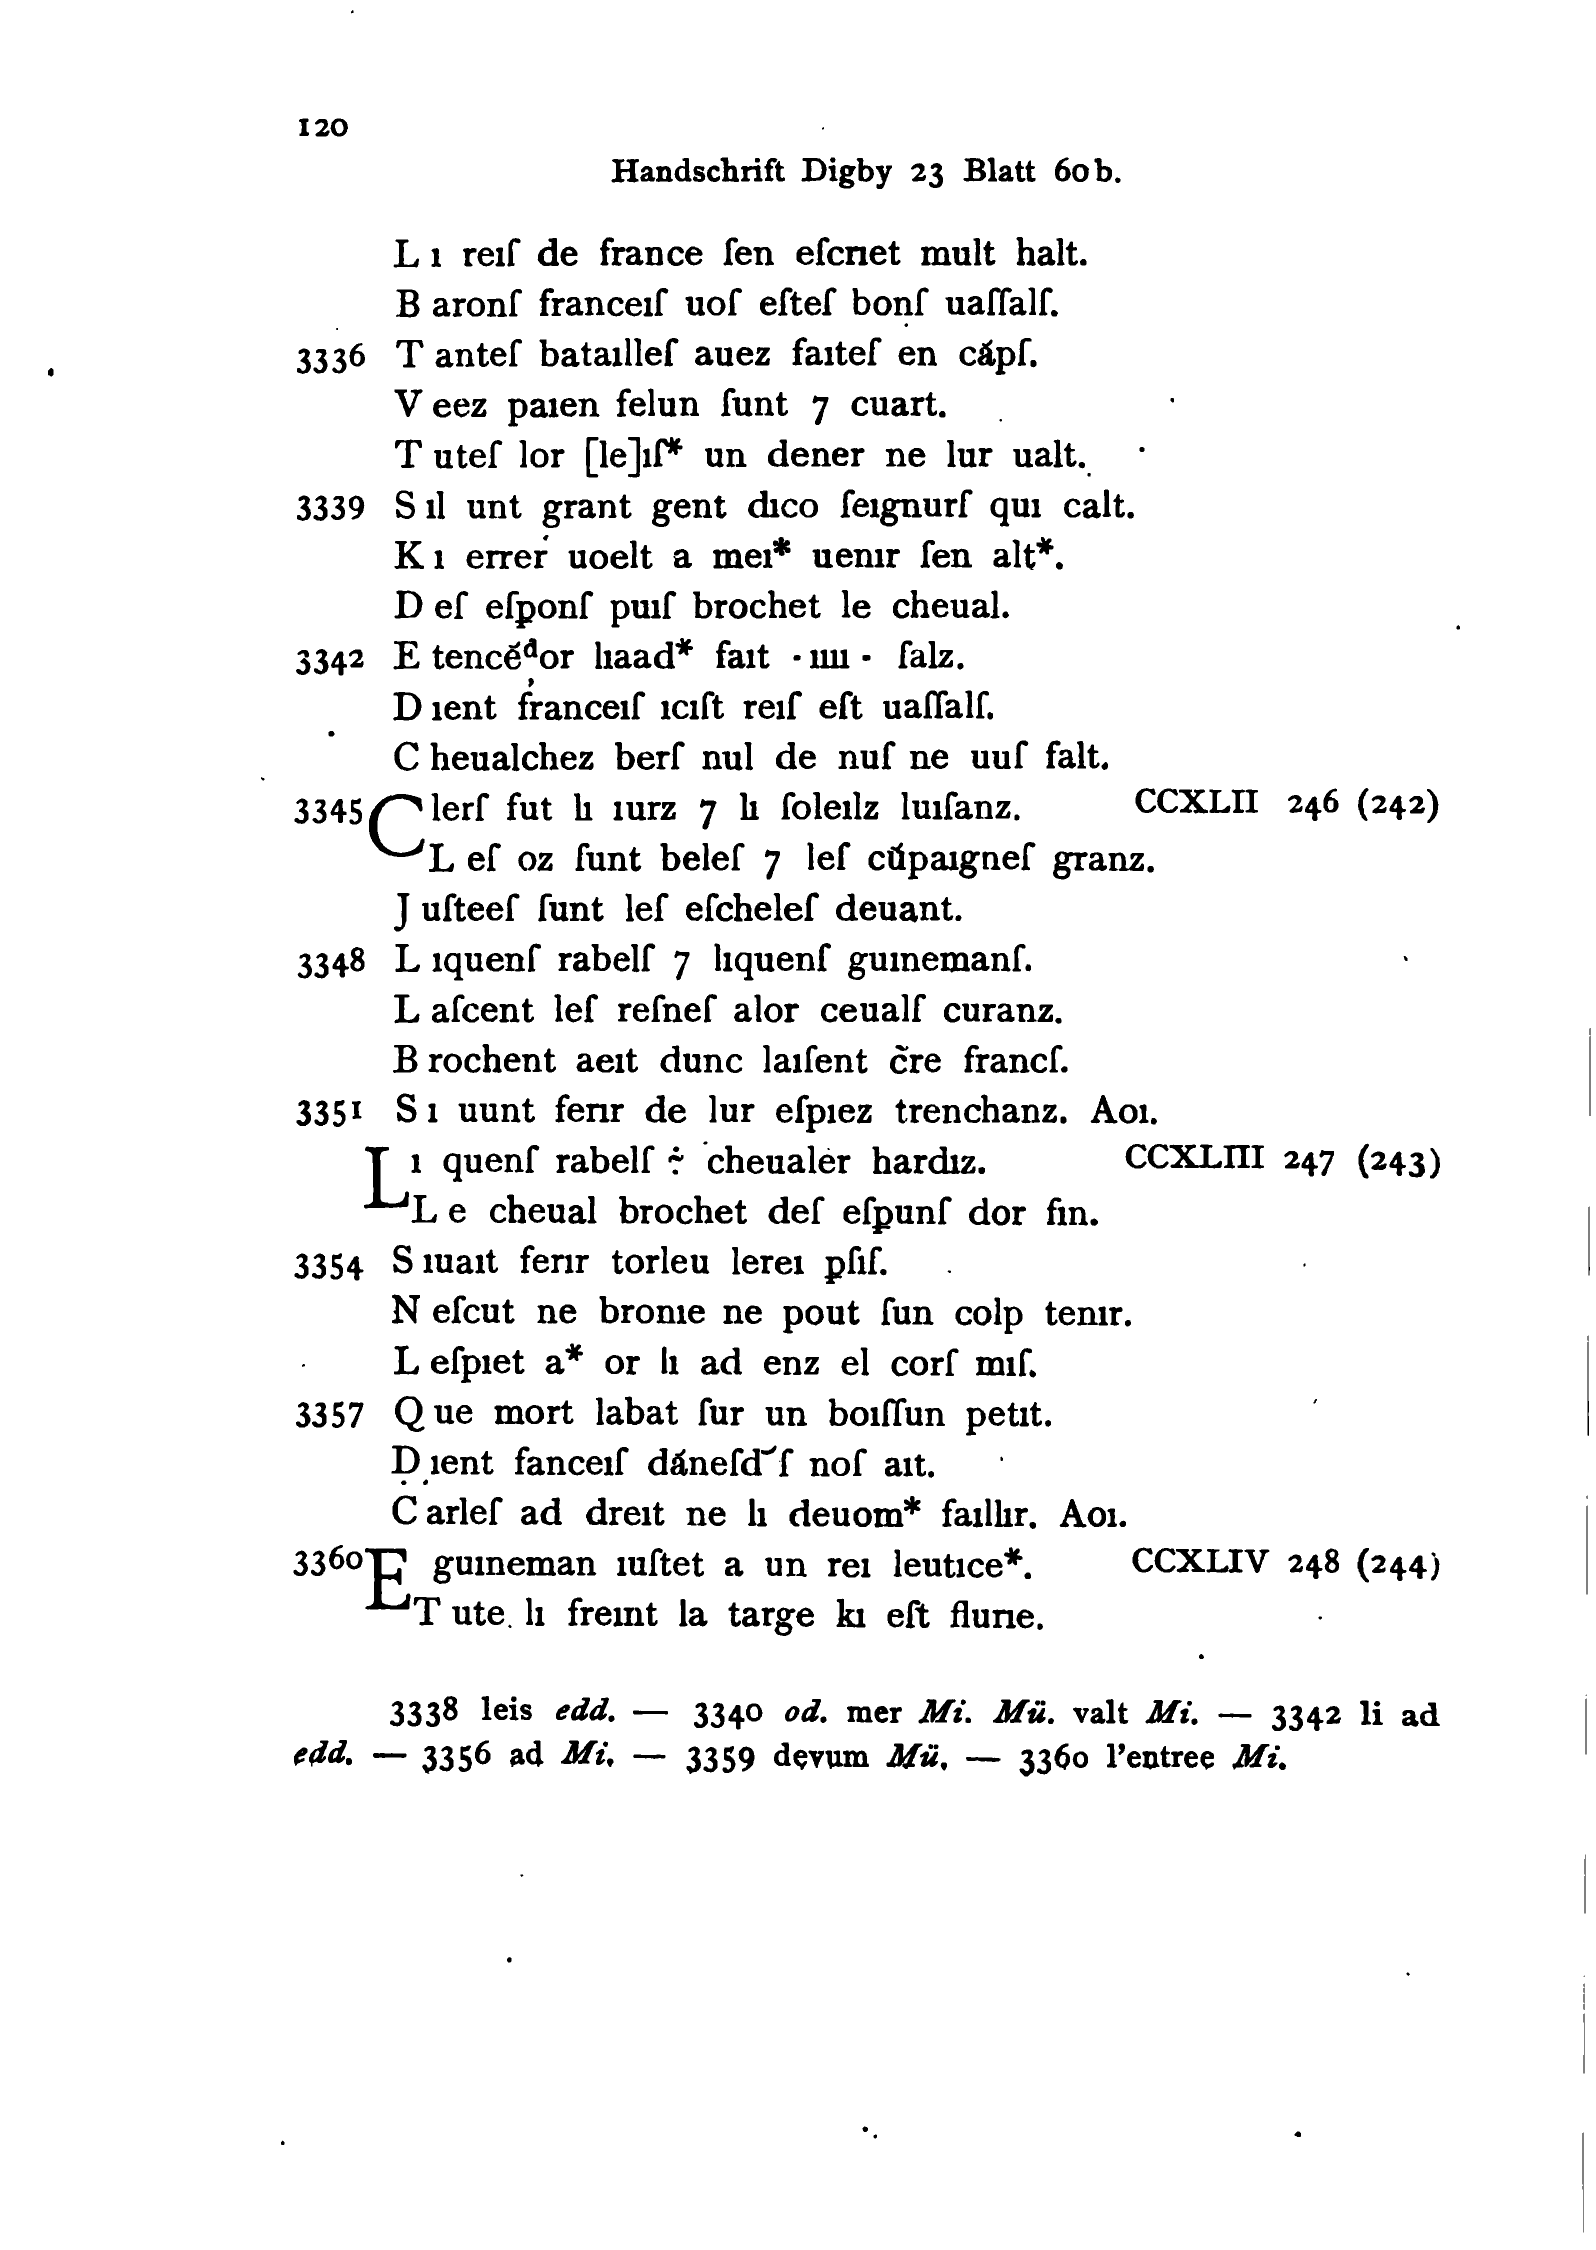 120
Handschrift Digby 23 Blatt 60b.
L ı reıſ de france ſen eſcrıet mult halt.
B aronſ franceıſ uoſ eſteſ bonſ uaſſalſ.
3336 T anteſ bataılleſ auez faıteſ en cāpſ.
V eez paıen felun ſunt 7 cuart.
T uteſ lor [le]ıſ* un dener ne lur ualt.
3339 S ıl unt grant gent dıco ſeıgnurſ quı calt.
K ı errer uoelt a meı* uenır ſen alt*.
D eſ eſponſ puıſ brochet le cheual.
3342 E tencēᵈor lıaad* faıt · ıııı · ſalz.
D ıent franceıſ ıcıſt reıſ eſt uaſſalſ.
C heualchez berſ nul de nuſ ne uuſ falt.
3345 Clerſ fut lı ıurz 7 lı ſoleılz luıſanz. CCXLII 246 (242)
L eſ oz ſunt beleſ 7 leſ cūpaıgneſ granz.
J uſteeſ ſunt leſ eſcheleſ deuant.
3348 L ıquenſ rabelſ 7 lıquenſ guınemanſ.
L aſcent leſ reſneſ alor ceualſ curanz.
B rochent aeıt dunc laıſent c̄re francſ.
3351 S ı uunt ferır de lur eſpıez trenchanz. Aoı.
Lı quenſ rabelſ ÷ cheualer hardız. CCXLIII 247 (243)
L e cheual brochet deſ eſpunſ dor fın.
3354 S ıuaıt ferır torleu lereı ꝑſıſ.
N eſcut ne bronıe ne pout ſun colp tenır.
L eſpıet a* or lı ad enz el corſ mıſ.
3357 Q ue mort labat ſur un boıſſun petıt.
D ıent fanceıſ dāneſd᷒ſ noſ aıt.
C arleſ ad dreıt ne lı deuom* faıllır. Aoı.
3360 E guıneman ıuſtet a un reı leutıce*. CCXLIV 248 (244)
T ute lı freınt la targe kı eſt flurıe.
3338 leis edd. — 3340 od. mer Mi. Mü. valt Mi. — 3342 li ad
edd. — 3356 ad Mi. — 3359 devum Mü. — 3360 l’entree Mi.